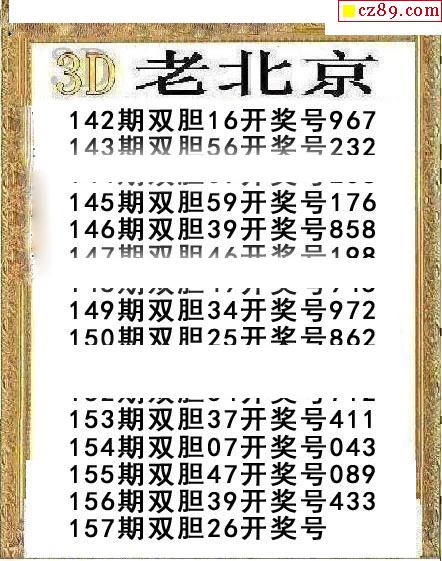 cz89.com
3D 老北京
142期双胆16开奖号967
143期双胆56开奖号232
145期双胆59开奖号176
146期双胆39开奖号858
147期双胆46开奖号198
149期双胆34开奖号972
150期双胆25开奖号862
153期双胆37开奖号411
154期双胆07开奖号043
155期双胆47开奖号089
156期双胆39开奖号433
157期双胆26开奖号